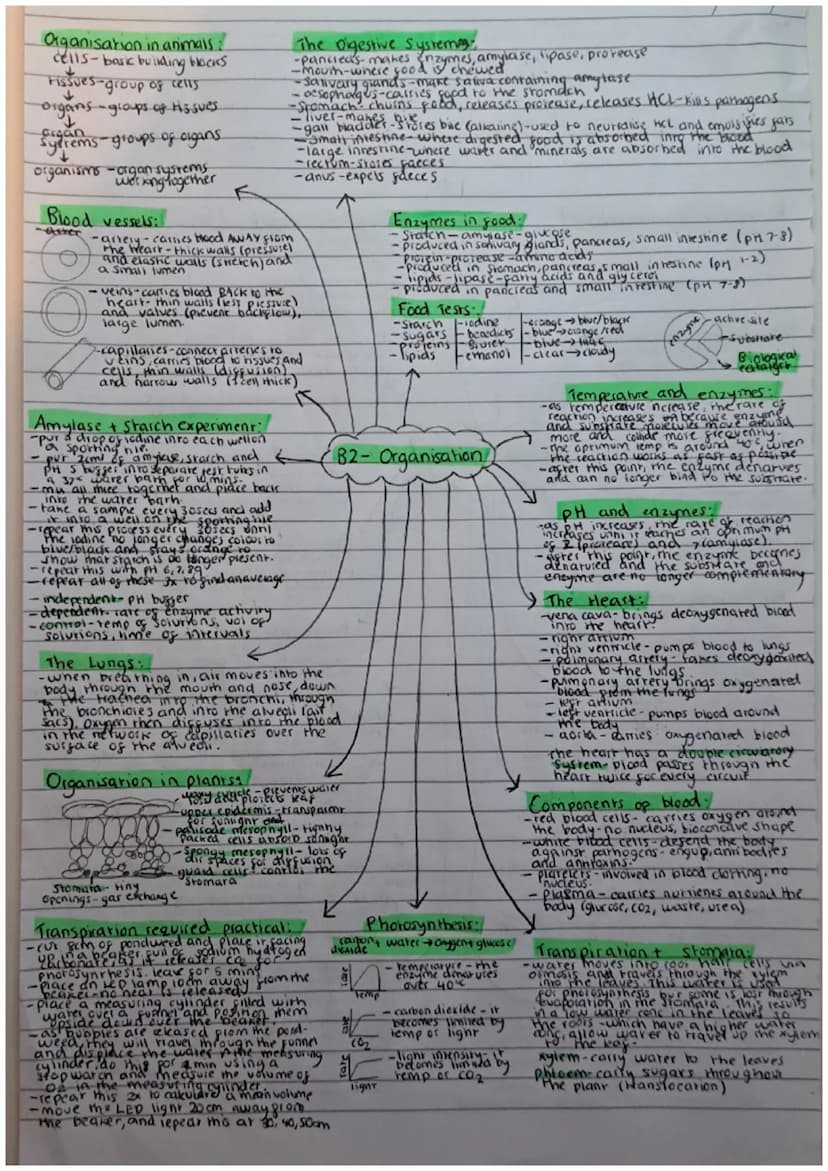 Organisation in animals:
cells - basic building blocks
tissues - group of cells
organs - groups of tissues
organ
systems - groups of organs
organisms - organ systems
working together
The Digestive System:
- pancreas - makes enzymes, amylase, lipase, protease
- mouth - where food is chewed
- salivary glands - make saliva containing amylase
- oesophagus - carries food to the stomach
- stomach - churns food, releases protease, releases HCL - kills pathogens
- liver - makes bile
- gall bladder - stores bile (alkaline) - used to neutralise HCL and emulsifies fats
- small intestine - where digested food is absorbed into the blood
- large intestine - where water and minerals are absorbed into the blood
- rectum - stores faeces
- anus - expels faeces
Blood vessels:
- artery - carries blood AWAY from
the heart - thick walls (pressure)
and elastic walls (stretch) and
a small lumen
- veins - carries blood BACK to the
heart - thin walls (less pressure)
and valves (prevent backflow),
large lumen
- capillaries - connect arteries to
veins, carries blood to tissues and
cells, thin walls (diffusion)
and narrow walls (1 cell thick)
Enzymes in food:
- starch - amylase - glucose
- produced in salivary glands, pancreas, small intestine (pH 7-8)
- protein - protease - amino acids
- produced in stomach, pancreas, small intestine (pH 1-2)
- lipids - lipase - fatty acids and glycerol
- produced in pancreas and small intestine (pH 7-8)
Food Tests:
- starch - iodine - orange → blue/black
- sugars - benedicts - blue → orange/red
- proteins - biuret - blue → lilac
- lipids - ethanol - clear → cloudy
enzyme
active site
substrate
Biological
catalyst
Temperature and enzymes:
- as temperature increase, the rate of
reaction increases because enzyme
and substrate molecules move around
more and collide more frequently.
- the optimum temp is around 40°c, when
the reaction works as fast as possible
- after this point, the enzyme denatures
and can no longer bind to the substrate.
Amylase + Starch experiment:
- put a drop of iodine into each well on
a spotting tile.
- put 2cm³ of amylase, starch and
pH 5 buffer into separate test tubes in
a 37°c water bath for 10 mins.
- mix all three together and place back
into the water bath.
- take a sample every 30secs and add
it into a well on the spotting tile
- repeat this process every 30secs until
the iodine no longer changes colour to
blue/black and stays orange to
show that starch is no longer present.
- repeat this with pH 6,7,8,9
- repeat all of these 3x to find an average
- independent - pH buffer
- dependent - rate of enzyme activity
- control - temp of solutions, vol of
solutions, time of intervals
B2 - Organisation
pH and enzymes:
- as pH increases, the rate of reaction
increases until it reaches an optimum pH
of 2 (protease) and 7 (amylase).
- after this point, the enzyme becomes
denatured and the substrate and
enzyme are no longer complementary
The Heart:
- vena cava - brings deoxygenated blood
into the heart.
- right atrium
- right ventricle - pumps blood to lungs
- pulmonary artery - takes deoxygenated
blood to the lungs
- pulmonary artery brings oxygenated
blood from the lungs
- left atrium
- left ventricle - pumps blood around
the body
- aorta - carries oxygenated blood
the heart has a double circulatory
system - blood passes through the
heart twice for every circuit
The Lungs:
- when breathing in, air moves into the
body through the mouth and nose, down
the trachea into the bronchi, through
the bronchioles and into the alveoli (air
sacs). Oxygen then diffuses into the blood
in the network of capillaries over the
surface of the alveoli.
Organisation in plants:
waxy cuticle - prevents water
loss and protects leaf
upper epidermis - transparent
for sunlight
palisade mesophyll - tightly
packed cells absorb sunlight
Spongy mesophyll - lots of
air spaces for diffusion
guard cells - control the
stomata
Stomata - tiny
openings - gas exchange
Components of blood:
- red blood cells - carries oxygen around
the body - no nucleus, bioconcave shape
- white blood cells - defend the body
against pathogens - engulf, antibodies
and antitoxins.
- platelets - involved in blood clotting, no
nucleus.
- plasma - carries nutrients around the
body (glucose, CO2, waste, urea)
Transpiration required practical:
- cut 8cm of pondweed and place it facing
up in a beaker full of sodium hydrogen
carbonate, as it releases CO2 for
photosynthesis. leave for 5 mins
- place an LED lamp 10cm away from the
beaker - no heat is released
- place a measuring cylinder filled with
water over a funnel and position them
upside down over the beaker.
- as bubbles are released from the pond-
weed, they will travel through the funnel
and displace the water in the measuring
cylinder, do this for 2 min using a
stopwatch and measure the volume of
O2 in the measuring cylinder.
- repeat this 2x to calculate a mean volume
- move the LED light 20cm away from
the beaker, and repeat this at 30, 40, 50cm
Photosynthesis:
carbon dioxide, water → oxygen, glucose
rate
temp
- temperature - the
enzyme denatures
over 40°c
rate
CO2
- carbon dioxide - it
becomes limited by
temp or light
rate
light
- light intensity - it
becomes limited by
temp or CO2
Transpiration + stomata:
- water moves into root hair cells via
osmosis and travels through the xylem
into the leaves. This water is used
for photosynthesis but some is lost through
evaporation in the stomata. This results
in a low water conc in the leaves so
the roots - which have a higher water
conc, allow water to travel up the xylem
to the leaf.
xylem - carry water to the leaves
phloem - carry sugars throughout
the plant (translocation)